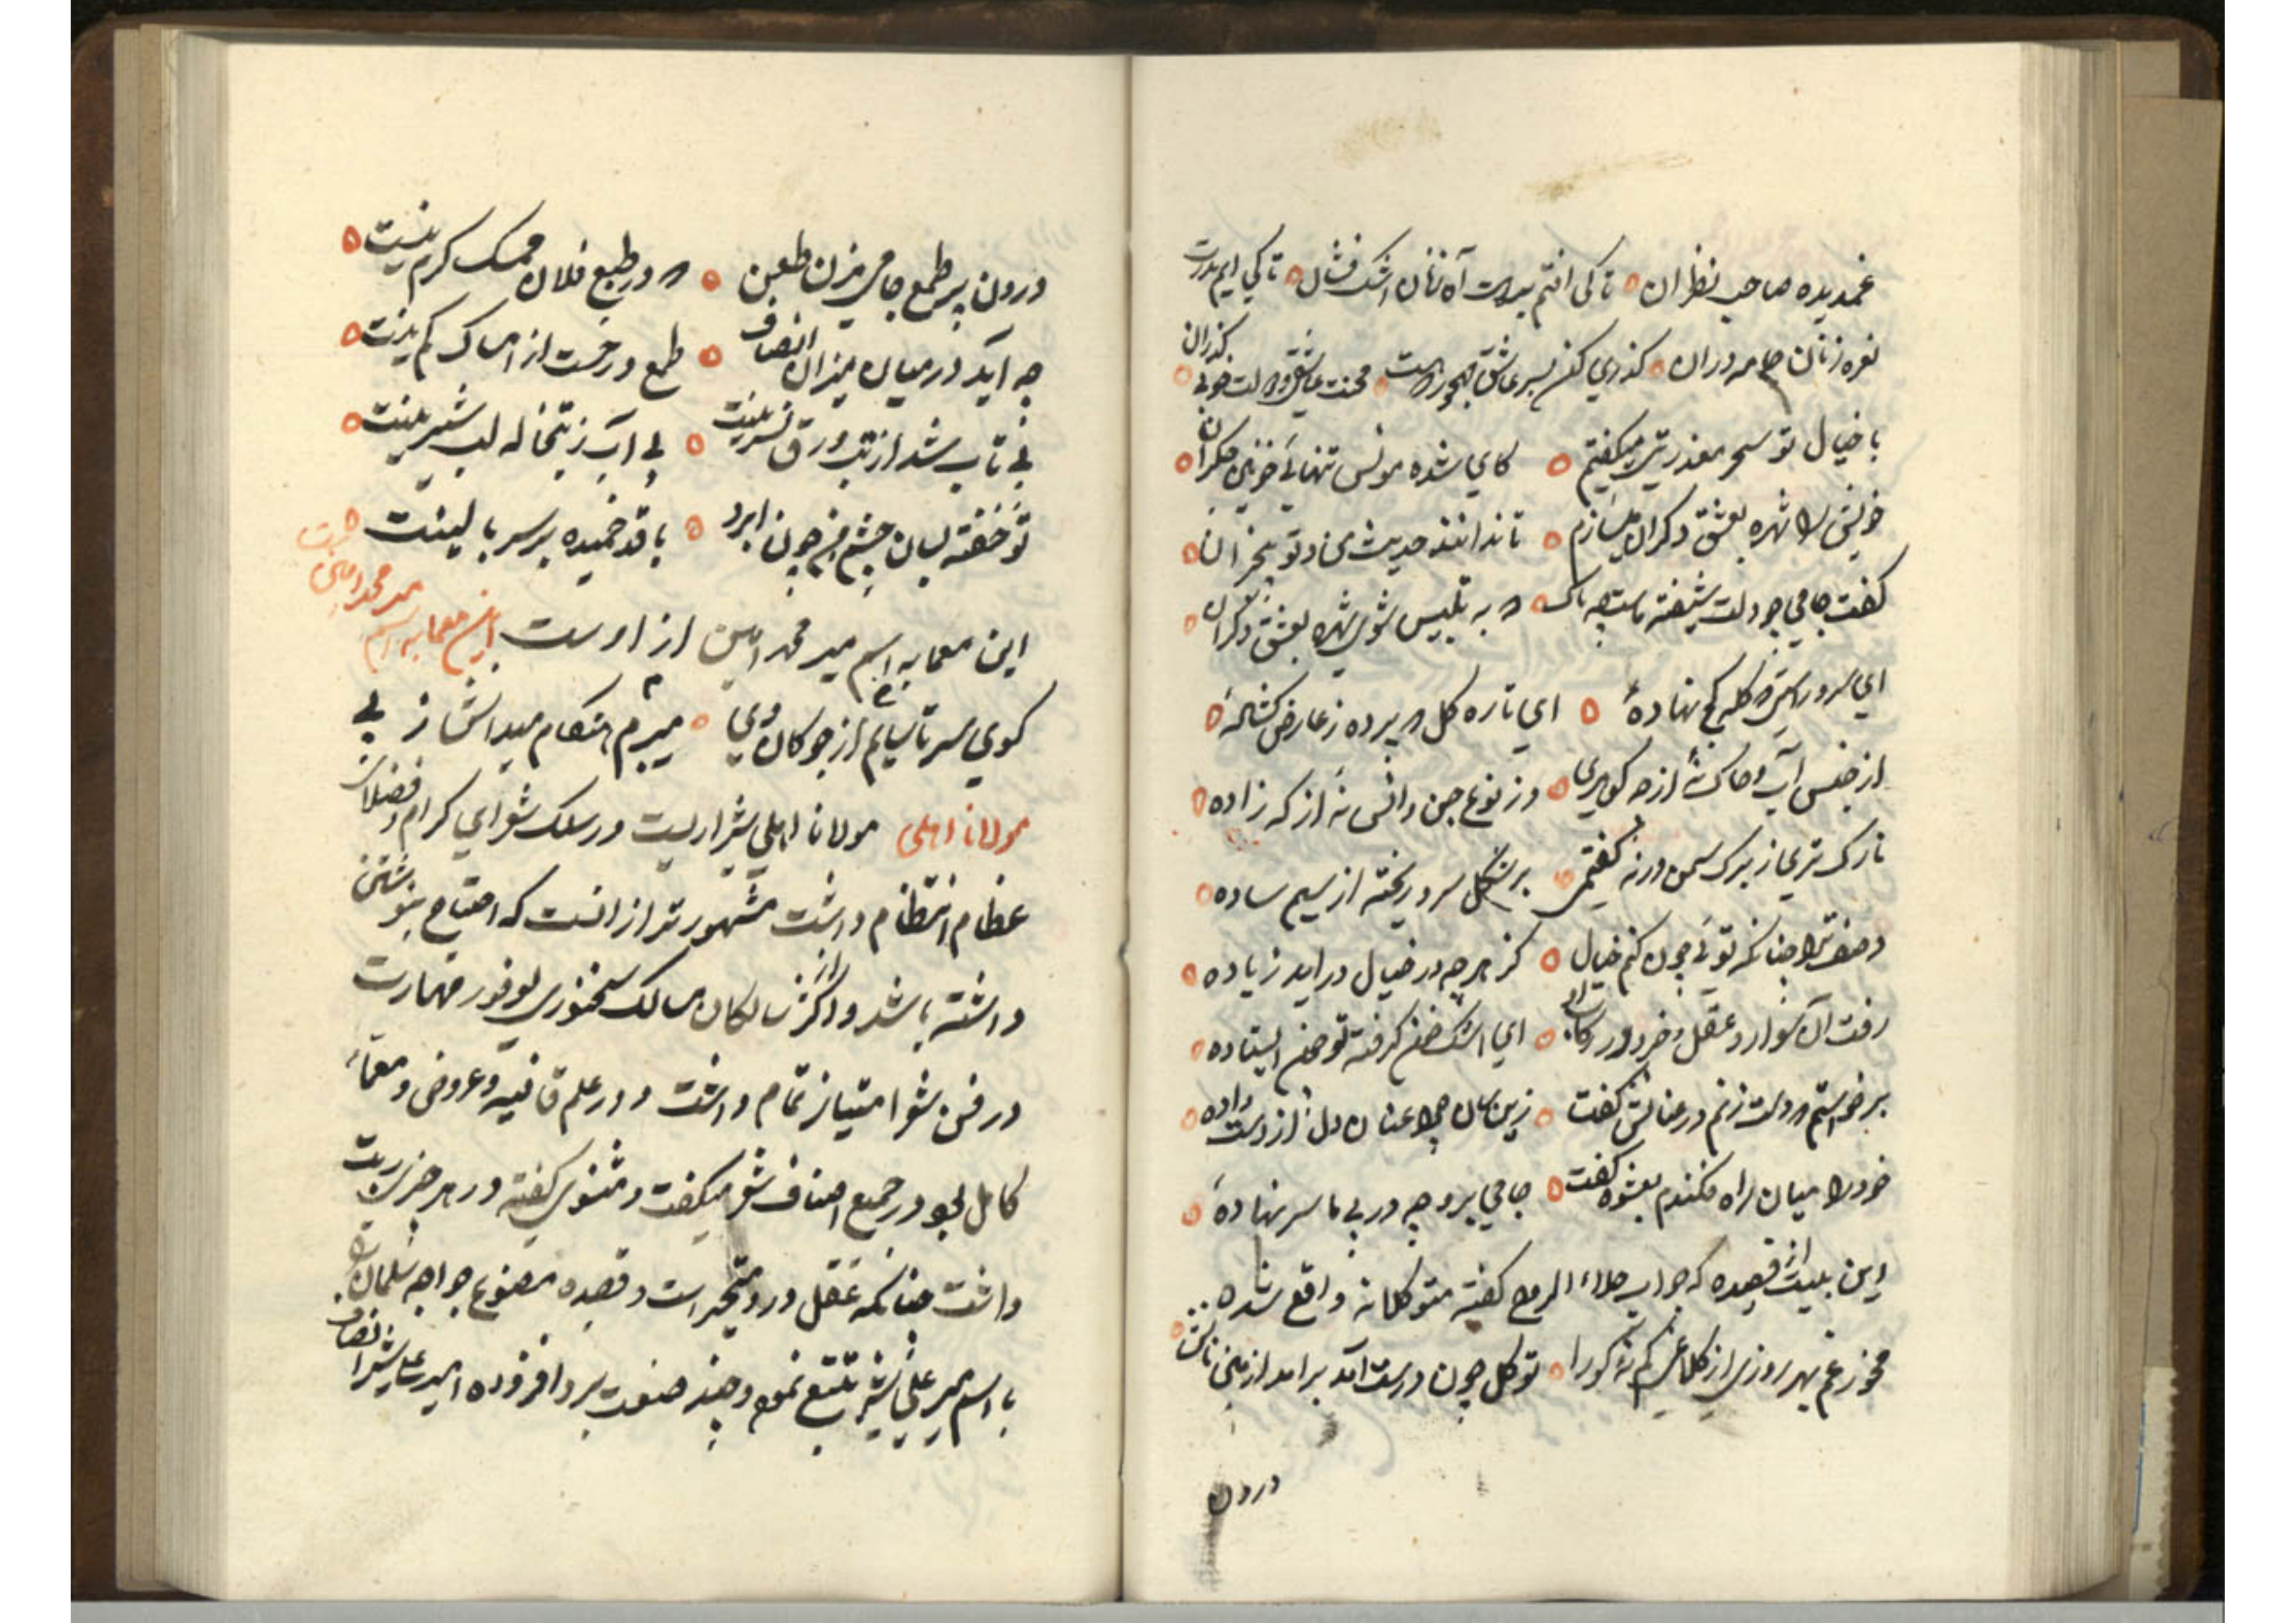 غمدیده صاحب نظران ٥ تا کی افتم بدرت آه زنان اشک فشان ٥ تا کی ایم بدرت
نعره زنان جامه دران ٥ کذری کن بسر عاشق مهجور محنت عاشق
با خیال تو سحر معذرتی میکفتم ٥ کای شده مونس تنهائی خونین جکران
خویش را شهره بعشق دکران میسازم ٥ تا ندانند حدیث من و تو بیخبران
کفت جامی چو دلت شیفته ماست چه باک ٥ که به تلبیس شوی شهره بعشق دکران
ای سرو راستی که کله کج نهادهٔ ٥ ای تازه کل که پرده ز عارض کشادهٔ
از جنس آب و خاک نهٔ از چه کوهری ٥ وز نوع جن و انس نهٔ از که زاده
نازک تری ز برک سمن ورنه کفتمی ٥ بر شکل سرو ریخته از سیم ساده
وصف ترا چنانکه توئی چون کنم خیال ٥ کز هرچه در خیال در اید زیاده
رفت آن سوار و عقل و خرد در رکاب او ٥ ای اشک خون کرفته تو چون ایستاده
برخواستم که دست زنم در عنانش کفت ٥ زین سان چرا عنان دل از دست داده
خود را میان راه فکندم بعشوه کفت ٥ جامی برو چه در پی ما سر نهادهٔ
این بیت از قصیده که جواب جلاء الروح کفته متوکلانه واقع شده
مخور غم بهر روزی از کلاغی کم نهٔ کورا ٥ توکل چون درست آمد برامد از زمین نانش
درون
درون پر طمع جامی مزن طعن ٥ که در طبع فلان ممسک کرم نیست
چه آید در میان میزان انصاف ٥ طمع در خست از امساک کم نیست
بی تاب شد از تب ورق نسرینت ٥ بی آب ز تبخاله لب شیرینت
تو خفته بسان چشم من چون ابرو ٥ با قد خمیده بر سر بالینت ٥
این معما به اسم میر محمد امین از اوست این معما به اسم میر محمد امین
کوی سر تا سایم از جوکان وی ٥ میبرم هنکام میدانش ز پی
مولانا اهلی مولانا اهلی شیرازیست در سلک شعرای کرام و فضلای
عظام انتظام داشت مشهورتر از انست که احتیاج بنوشتن
داشته باشد و اکثر سالکان مسالک سخنوری بوفور مهارت
در فن شعر امتیاز تمام داشت و در علم قافیه و عروض و معمّا
کامل بود در جمیع اصناف شعر میکفت و مثنوی کفته در هر
داشت چنانکه عقل در و متحیر است و قصیده مصنوع خواجه سلمان
باسم میر علی شیر تتبع نموده و چند صنعت بر و افزوده امیر علیشیر انصاف